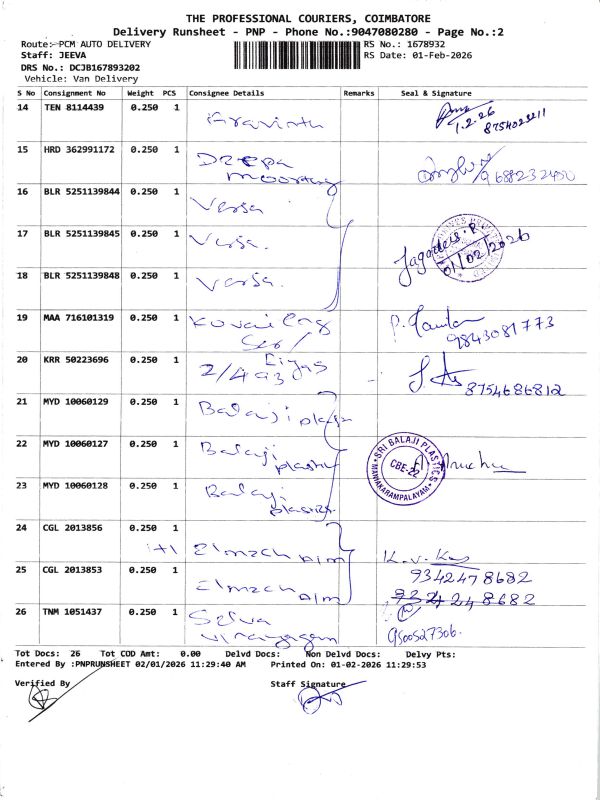 THE PROFESSIONAL COURIERS, COIMBATORE
Delivery Runsheet - PNP - Phone No.:9047080280 - Page No.:2
Route:-PCM AUTO DELIVERY
RS No.: 1678932
Staff: JEEVA
RS Date: 01-Feb-2026
DRS No.: DCJB167893202
Vehicle: Van Delivery
S No Consignment No Weight PCS Consignee Details Remarks Seal & Signature
14 TEN 8114439 0.250 1
1.2.26
15 HRD 362991172 0.250 1 Deepa
moorthy 9688232450
16 BLR 5251139844 0.250 1 Versa
17 BLR 5251139845 0.250 1 Versa.
01/02/2026
18 BLR 5251139848 0.250 1 Versa.
19 MAA 716101319 0.250 1 Kovai Eng
9843081773
20 KRR 50223696 0.250 1
8754686812
21 MYD 10060129 0.250 1 Balaji
22 MYD 10060127 0.250 1 Balaji
SRI BALAJI PLASTICS
CBE-22
MANIAKARAMPALAYAM
23 MYD 10060128 0.250 1 Balaji
24 CGL 2013856 0.250 1
1+1 Elmech
9342478682
25 CGL 2013853 0.250 1
Elmech
26 TNM 1051437 0.250 1 Selva
Vinayagam
Tot Docs: 26 Tot COD Amt: 0.00 Delvd Docs: Non Delvd Docs: Delvy Pts:
Entered By :PNPRUNSHEET 02/01/2026 11:29:40 AM Printed On: 01-02-2026 11:29:53
Verified By Staff Signature